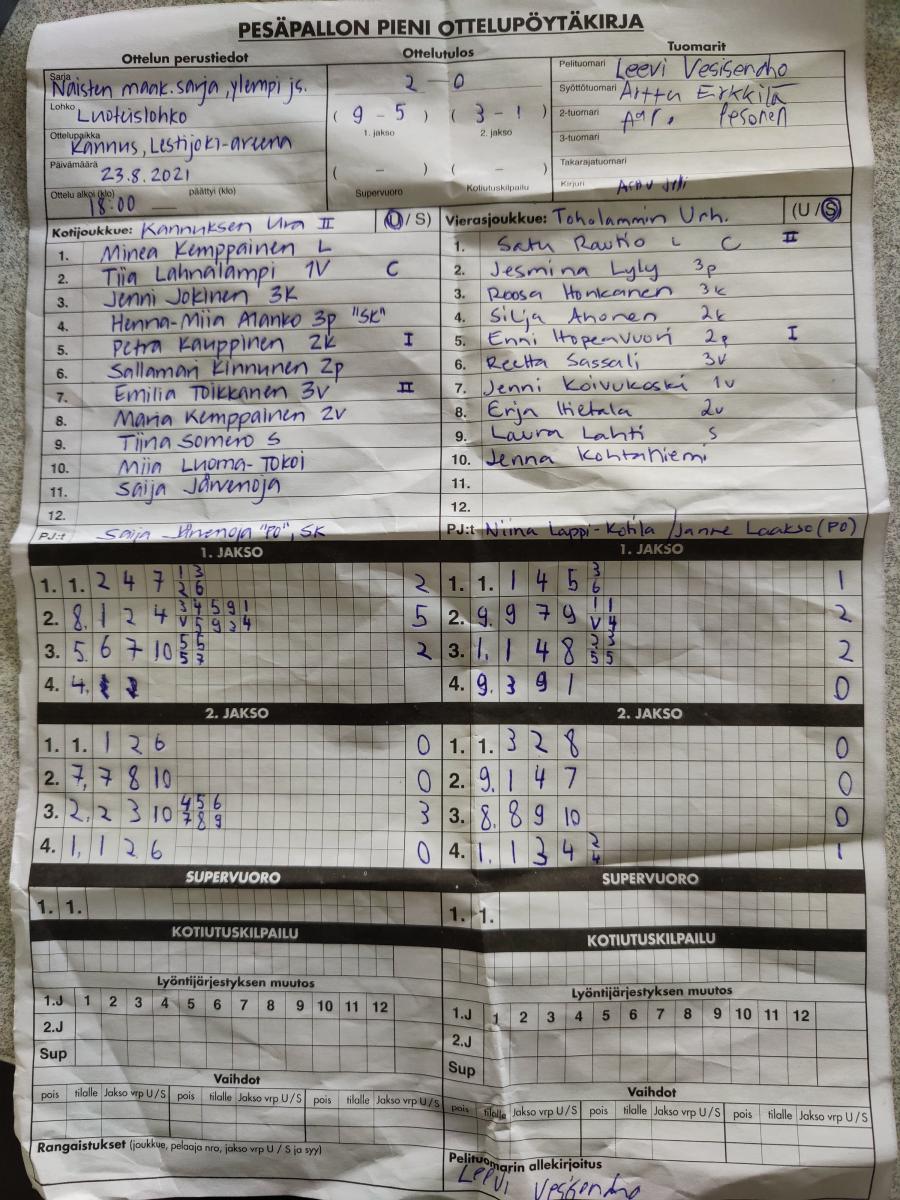 PESÄPALLON PIENI OTTELUPÖYTÄKIRJA
Ottelun perustiedot
Sarja Naisten maak.sarja, ylempi js.
Lohko Luotuslohko
Ottelupaikka Kannus, Lestijoki-areena
Päivämäärä 23.8.2021
Ottelu alkoi (klo) 18:00 päättyi (klo)
Ottelutulos
2 - 0
( 9 - 5 ) ( 3 - 1 )
1. jakso 2. jakso
( - ) ( - )
Supervuoro Kotiutuskilpailu
Tuomarit
Pelituomari Leevi Vesisenaho
Syöttötuomari Arttu Erkkilä
2-tuomari Pesonen
3-tuomari
Takarajatuomari
Kirjuri
Kotijoukkue: Kannuksen Ura II (U / S)
1. Minea Kemppainen L
2. Tiia Lahnalampi 1V C
3. Jenni Jokinen 3K
4. Henna-Miia Alanko 3p "SK"
5. Petra Kauppinen 2k I
6. Sallamari Kinnunen 2p
7. Emilia Toikkanen 3v II
8. Maria Kemppainen 2v
9. Tiina Somero S
10. Miia Luoma-Tokoi
11. Saija Järvenoja
12.
PJ:t Saija Järvenoja "PO", SK
Vierasjoukkue: Toholammin Urh. (U / S)
1. Satu Rautio L C II
2. Jesmina Lyly 3p
3. Roosa Honkanen 3k
4. Silja Ahonen 2k
5. Enni Hopeavuori 2p I
6. Reetta Sassali 3v
7. Jenni Koivukoski 1v
8. Erja Hietala 2v
9. Laura Lahti S
10. Jenna Kohtaniemi
11.
12.
PJ:t Niina Lappi-Kohla / Janne Laakso (PO)
1. JAKSO
1. 1. 2 4 7 1 3 2
2 6
2. 8. 1 2 4 3 4 5 9 1 5
V 5 9 3 4
3. 5. 6 7 10 5 6 2
5 7
4. 4.
1. JAKSO
1. 1. 1 4 5 3 1
6
2. 9. 9 7 9 1 1 2
V 4
3. 1. 1 4 8 2 3 2
5 5
4. 9. 3 9 1 0
2. JAKSO
1. 1. 1 2 6 0
2. 7. 7 8 10 0
3. 2. 2 3 10 4 5 6 3
7 8 9
4. 1. 1 2 6 0
2. JAKSO
1. 1. 3 2 8 0
2. 9. 1 4 7 0
3. 8. 8 9 10 0
4. 1. 1 3 4 2 1
4
SUPERVUORO
1. 1.
SUPERVUORO
1. 1.
KOTIUTUSKILPAILU
KOTIUTUSKILPAILU
Lyöntijärjestyksen muutos
1.J 1 2 3 4 5 6 7 8 9 10 11 12
2.J
Sup
Lyöntijärjestyksen muutos
1.J 1 2 3 4 5 6 7 8 9 10 11 12
2.J
Sup
Vaihdot
pois tilalle Jakso vrp U/S pois tilalle Jakso vrp U/S pois tilalle Jakso vrp U/S
Vaihdot
pois tilalle Jakso vrp U/S pois tilalle Jakso vrp U/S pois tilalle Jakso vrp U/S
Rangaistukset (joukkue, pelaaja nro, jakso vrp U / S ja syy)
Pelituomarin allekirjoitus
Leevi Vesisenaho